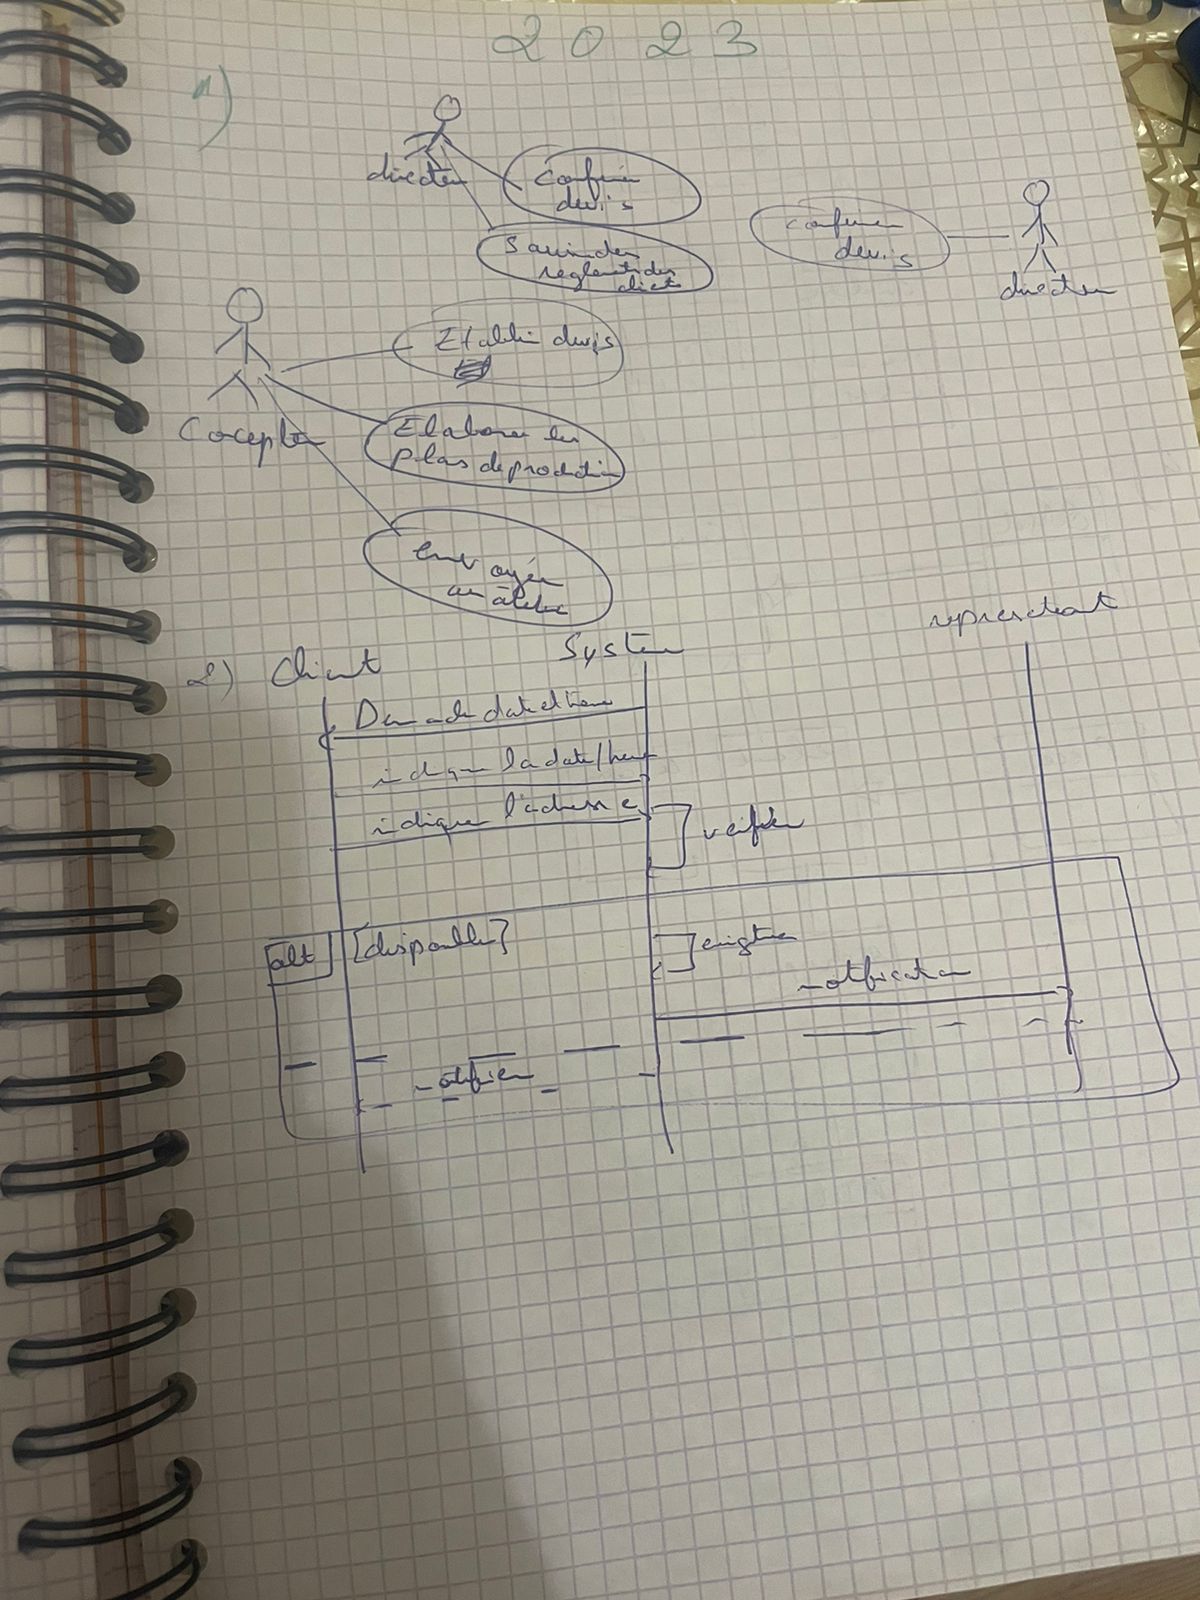 2023
1)
directeur
Confirmer
devis
Suivi des
règlements des
clients
Confirmer
devis
directeur
Etablir devis
Concepteur
Elaborer les
plans de production
envoyer
au atelier
2) Client
System
représentant
Demande date et heure
indique la date/heure
indiquer l'adresse
verifier
alt
[disponible]
enregistrer
notification
notifier